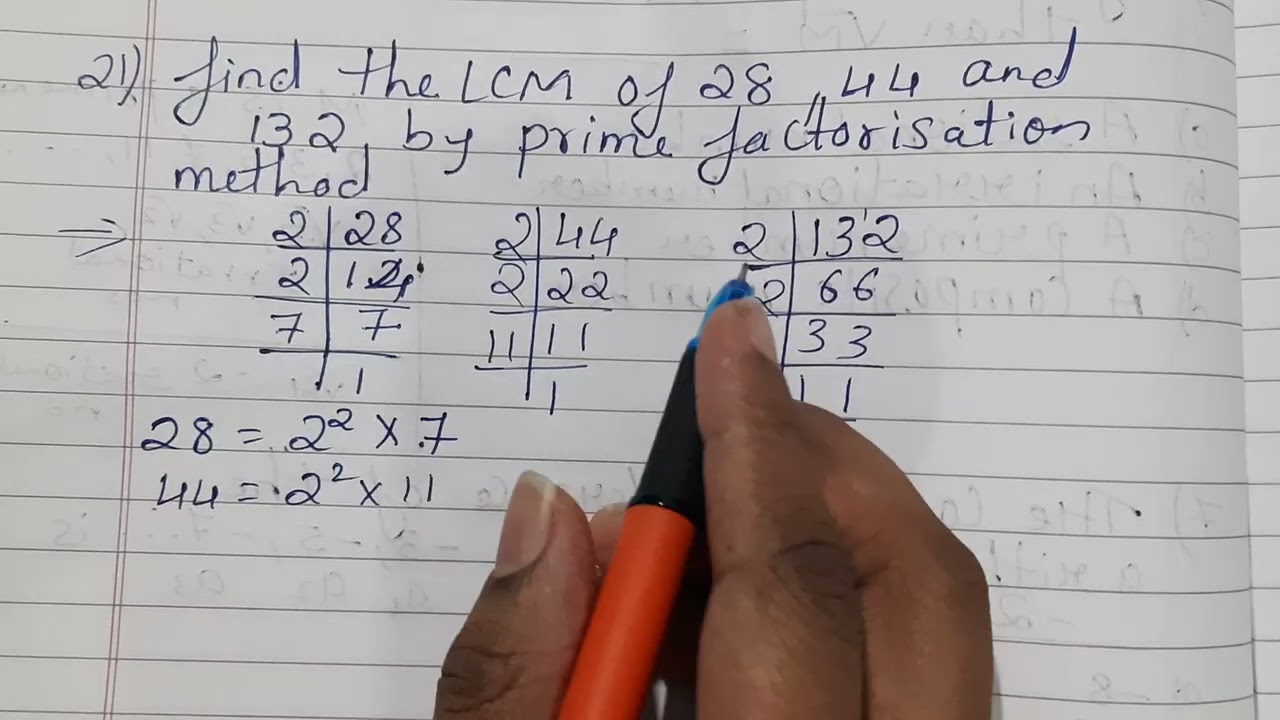 21) find the LCM of 28, 44 and
132, by prime factorisation
method
⇒ 2 | 28 2 | 44 2 | 132
2 | 14 2 | 22 2 | 66
7 | 7 11 | 11 33
1 1 11
28 = 2² × 7
44 = 2² × 11